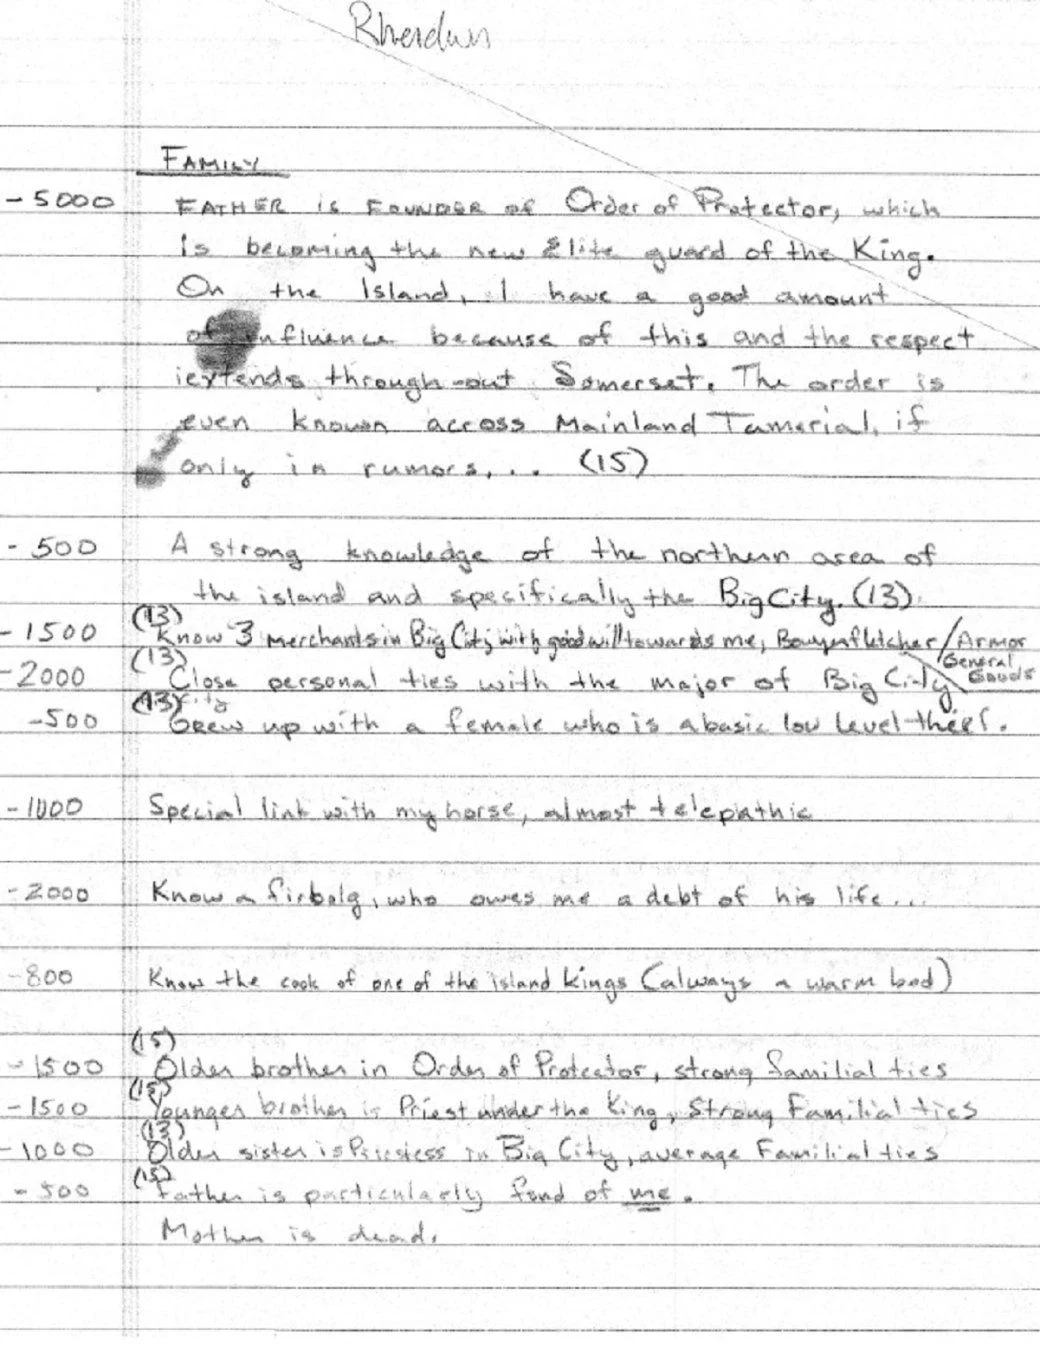 Rherdun
FAMILY
-5000 FATHER is FOUNDER of Order of Protector, which
is becoming the new Elite guard of the King.
On the Island, I have a good amount
of influence because of this and the respect
extends through-out Somerset. The order is
even known across Mainland Tamerial, if
only in rumors... (15)
-500 A strong knowledge of the northern area of
the island and specifically the Big City. (13)
(13)
-1500 Know 3 merchants in Big City with good will towards me, Bowyer/fletcher/Armor
General Goods
(13)
-2000 Close personal ties with the major of Big City
(13) City
-500 Grew up with a female who is a basic low level thief.
-1000 Special link with my horse, almost telepathic
-2000 Know a firbolg, who owes me a debt of his life...
-800 Know the cook of one of the island kings (always a warm bed)
(15)
-1500 Older brother in Order of Protector, strong familial ties
(15)
-1500 Younger brother is Priest under the King, Strong Familial ties
(13)
-1000 Older sister is Priestess in Big City, average Familial ties
(15)
-500 Father is particularly fond of me.
Mother is dead.